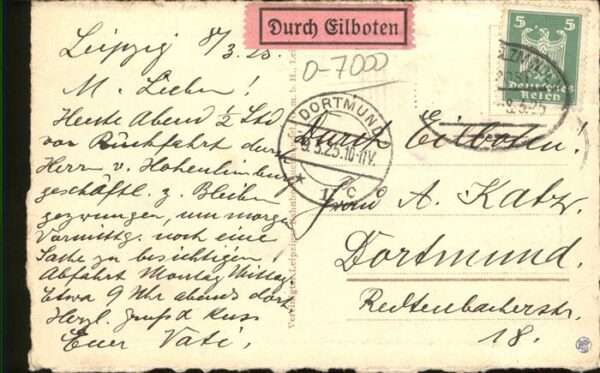 Leipzig 8/3.25.
M. Lieben!
Heute Abend ½ Std
vor Rückfahrt durch
Herrn v. Hohenlimburg
geschäftl. z. Bleiben
gezwungen, um morgen
Vormittg. noch eine
Sache zu besichtigen.
Abfahrt Montag Mittag
Etwa 9 Uhr abends dort
Herzl. Gruß u Kuss
Euer Vati.
Durch Eilboten
0-7000
DORTMUND
9.3.25.10-11V.
1 c
5 5
Deutsches
Reich
-8.3.25
Durch Eilboten!
Frau A. Katz.
Dortmund.
Redtenbacherstr.
18.